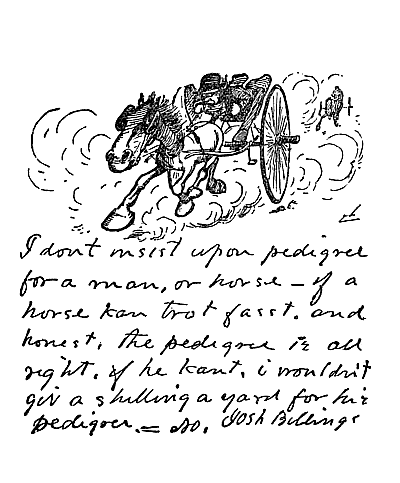 I dont insist upon pedigree
for a man, or horse – if a
horse kan trot fasst. and
honest, the pedigree iz all
right. if he kant, i wouldn't
giv a shilling a yard for hiz
pedigree. = So. Josh Billings